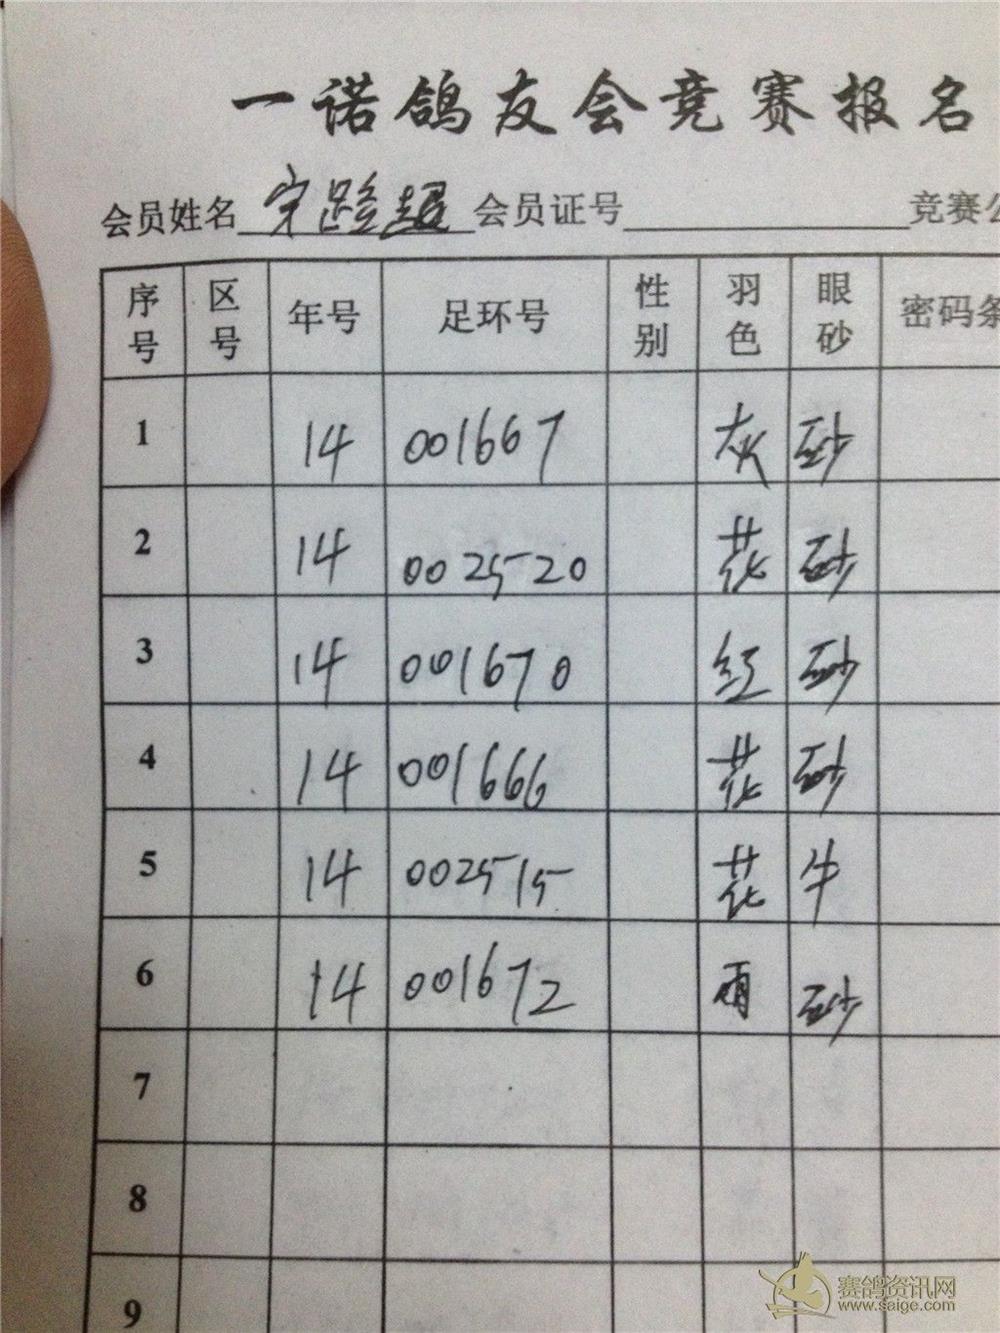 一诺鸽友会竞赛报名
会员姓名 宋跨超 会员证号 竞赛公
序号 区号 年号 足环号 性别 羽色 眼砂 密码条
1 14 001667 灰 砂
2 14 0025520 花 砂
3 14 001670 红 砂
4 14 001666 花 砂
5 14 002515 花 牛
6 14 001672 雨 砂
7
8
9
赛鸽资讯网
www.saige.com